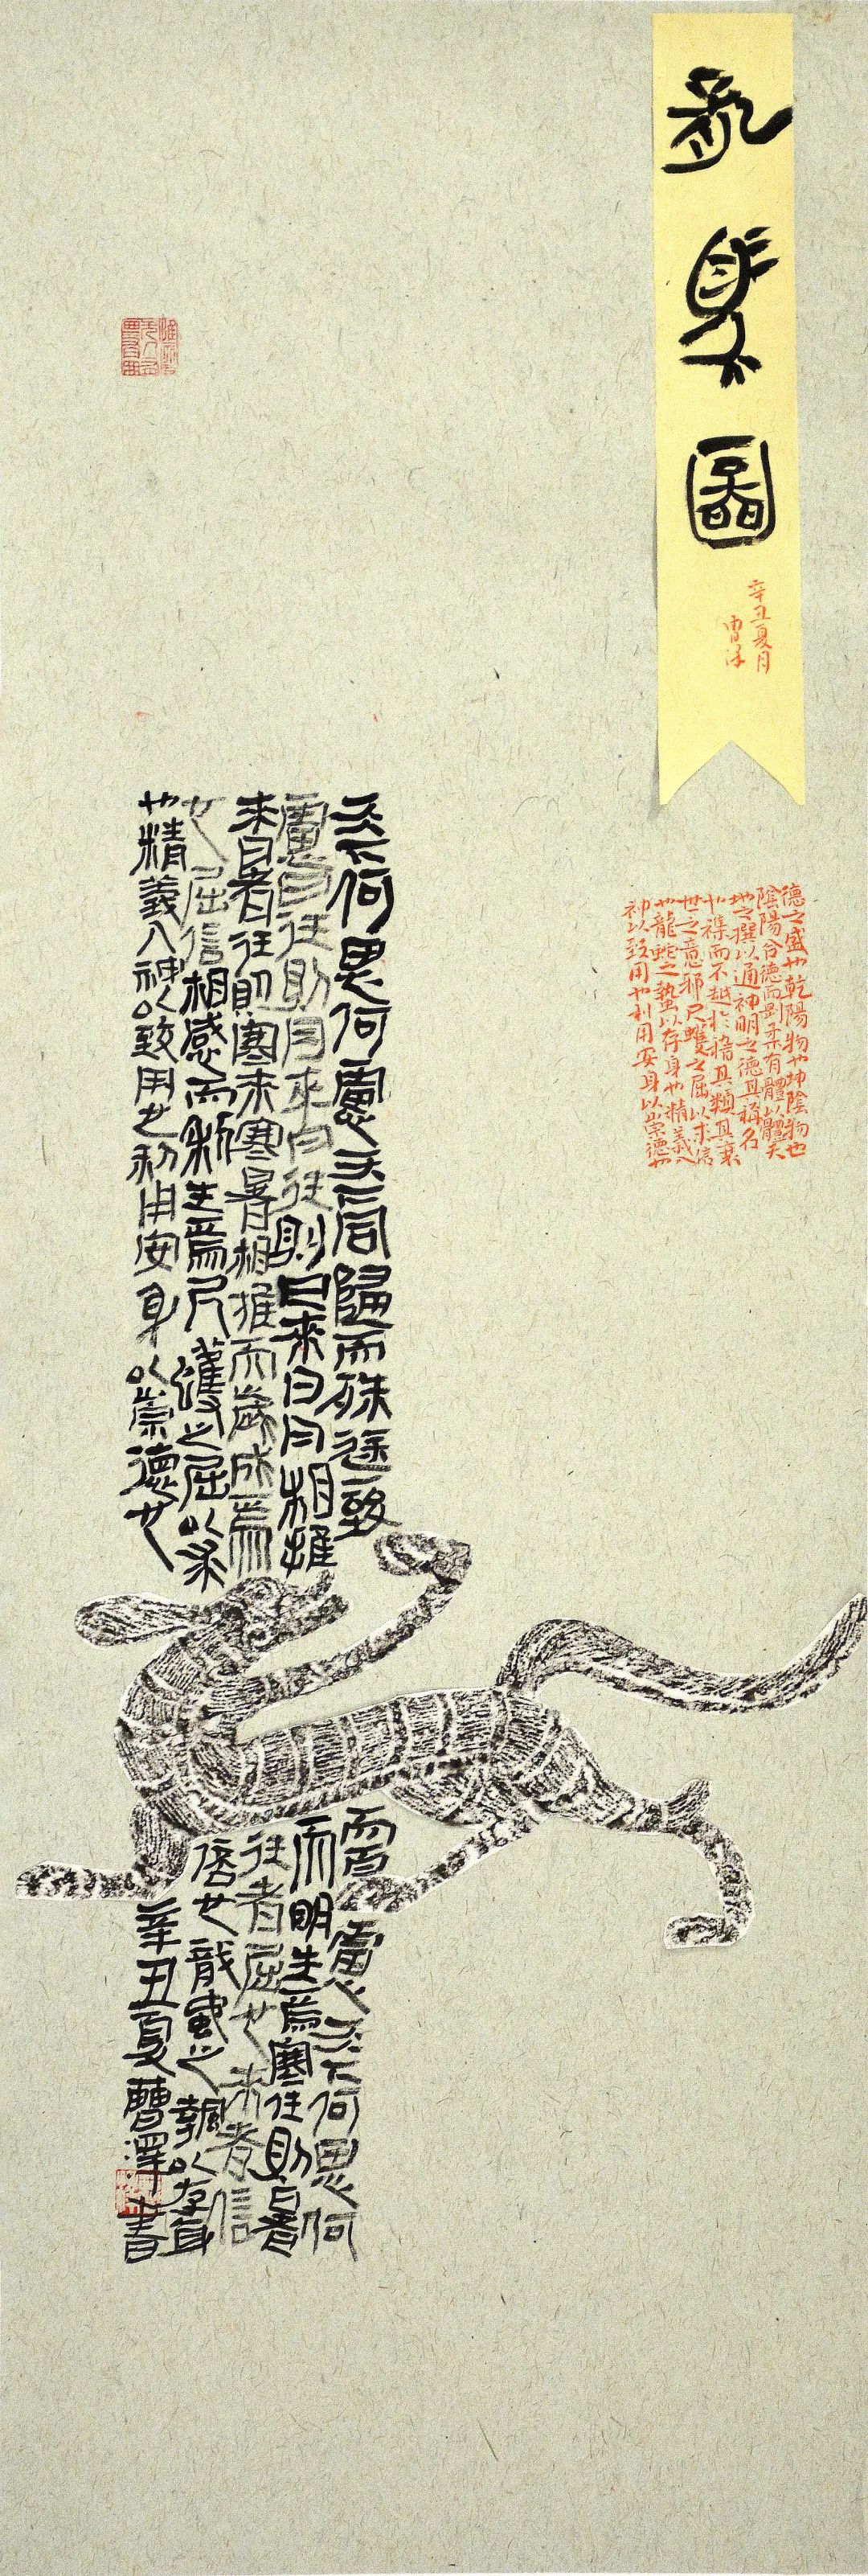 圖
辛丑夏月
曹澤
德之盛也乾陽物也坤陰物也
陰陽合德而剛柔有體以體天
地之撰以通神明之德其稱名
也雜而不越於稽其類其衰
世之意邪尺蠖之屈以求信
也龍蛇之蟄以存身也精義入
神以致用也利用安身以崇德也
天下何思何慮天下同歸而殊途一致而百慮天下何思何
慮日往則月來月往則日來日月相推而明生焉寒往則暑
來暑往則寒來寒暑相推而歲成焉往者屈也來者信
也屈信相感而利生焉尺蠖之屈以求信也龍蛇之蟄以存身
也精義入神以致用也利用安身以崇德也辛丑夏曹澤書